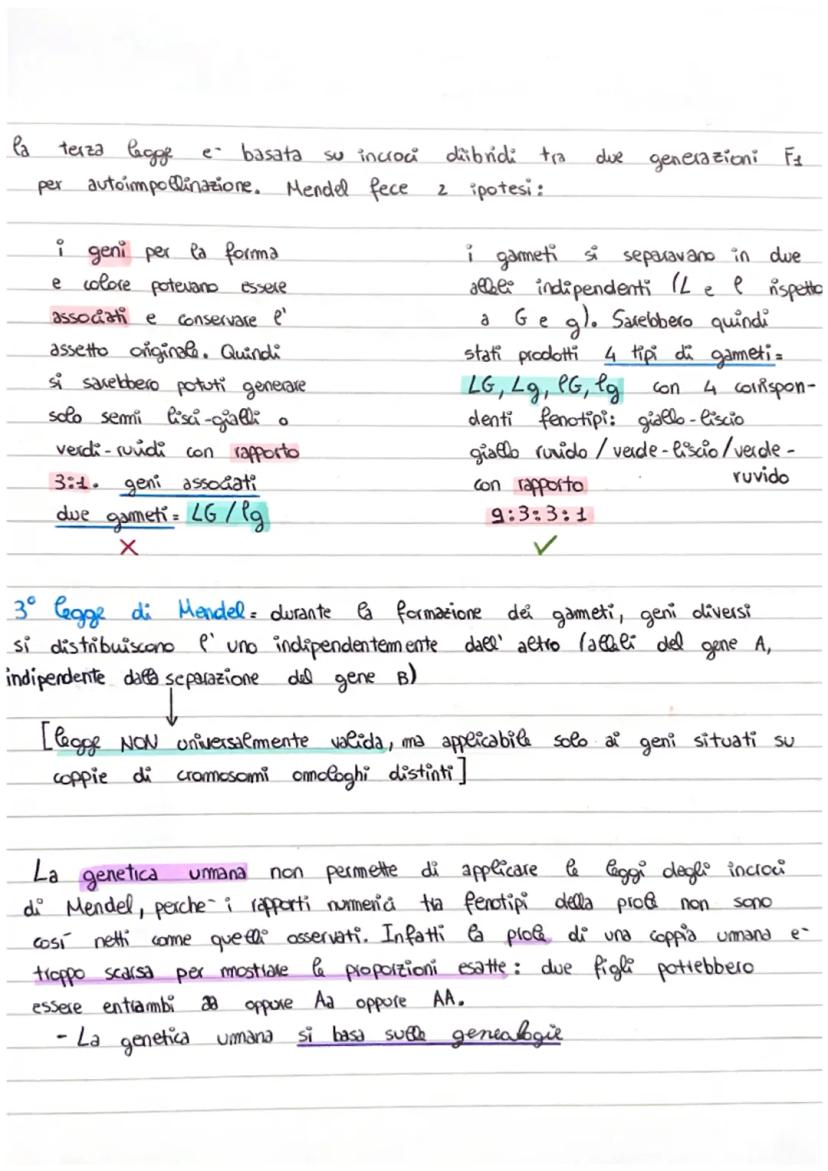 la terza legge e- basata su incroci diibridi tra due generazioni F1
per autoimpollinazione. Mendel fece 2 ipotesi:
i geni per la forma
e colore potevano essere
associati e conservare l'
assetto originale. Quindi
si sarebbero potuti generare
solo semi lisci-gialli o
verdi-ruvidi con rapporto
3:1. geni associati
due gameti = LG / lg
✗
i gameti si separavano in due
alleli indipendenti (L e l rispetto
a G e g). Sarebbero quindi
stati prodotti 4 tipi di gameti =
LG, Lg, lG, lg con 4 corrispon-
denti fenotipi: giallo-liscio
giallo ruvido / verde-liscio / verde-
ruvido
con rapporto
9:3:3:1
✓
3° legge di Mendel = durante la formazione dei gameti, geni diversi
si distribuiscono l'uno indipendentemente dall'altro (alleli del gene A,
indipendente dalla separazione del gene B)
[legge NON universalmente valida, ma applicabile solo ai geni situati su
coppie di cromosomi omologhi distinti]
La genetica umana non permette di applicare le leggi degli incroci
di Mendel, perche- i rapporti numerici tra fenotipi della prole non sono
così netti come quelli osservati. Infatti la prole di una coppia umana e-
troppo scarsa per mostrare le proporzioni esatte: due figli potrebbero
essere entrambi aa oppure Aa oppure AA.
- La genetica umana si basa sulle genealogie